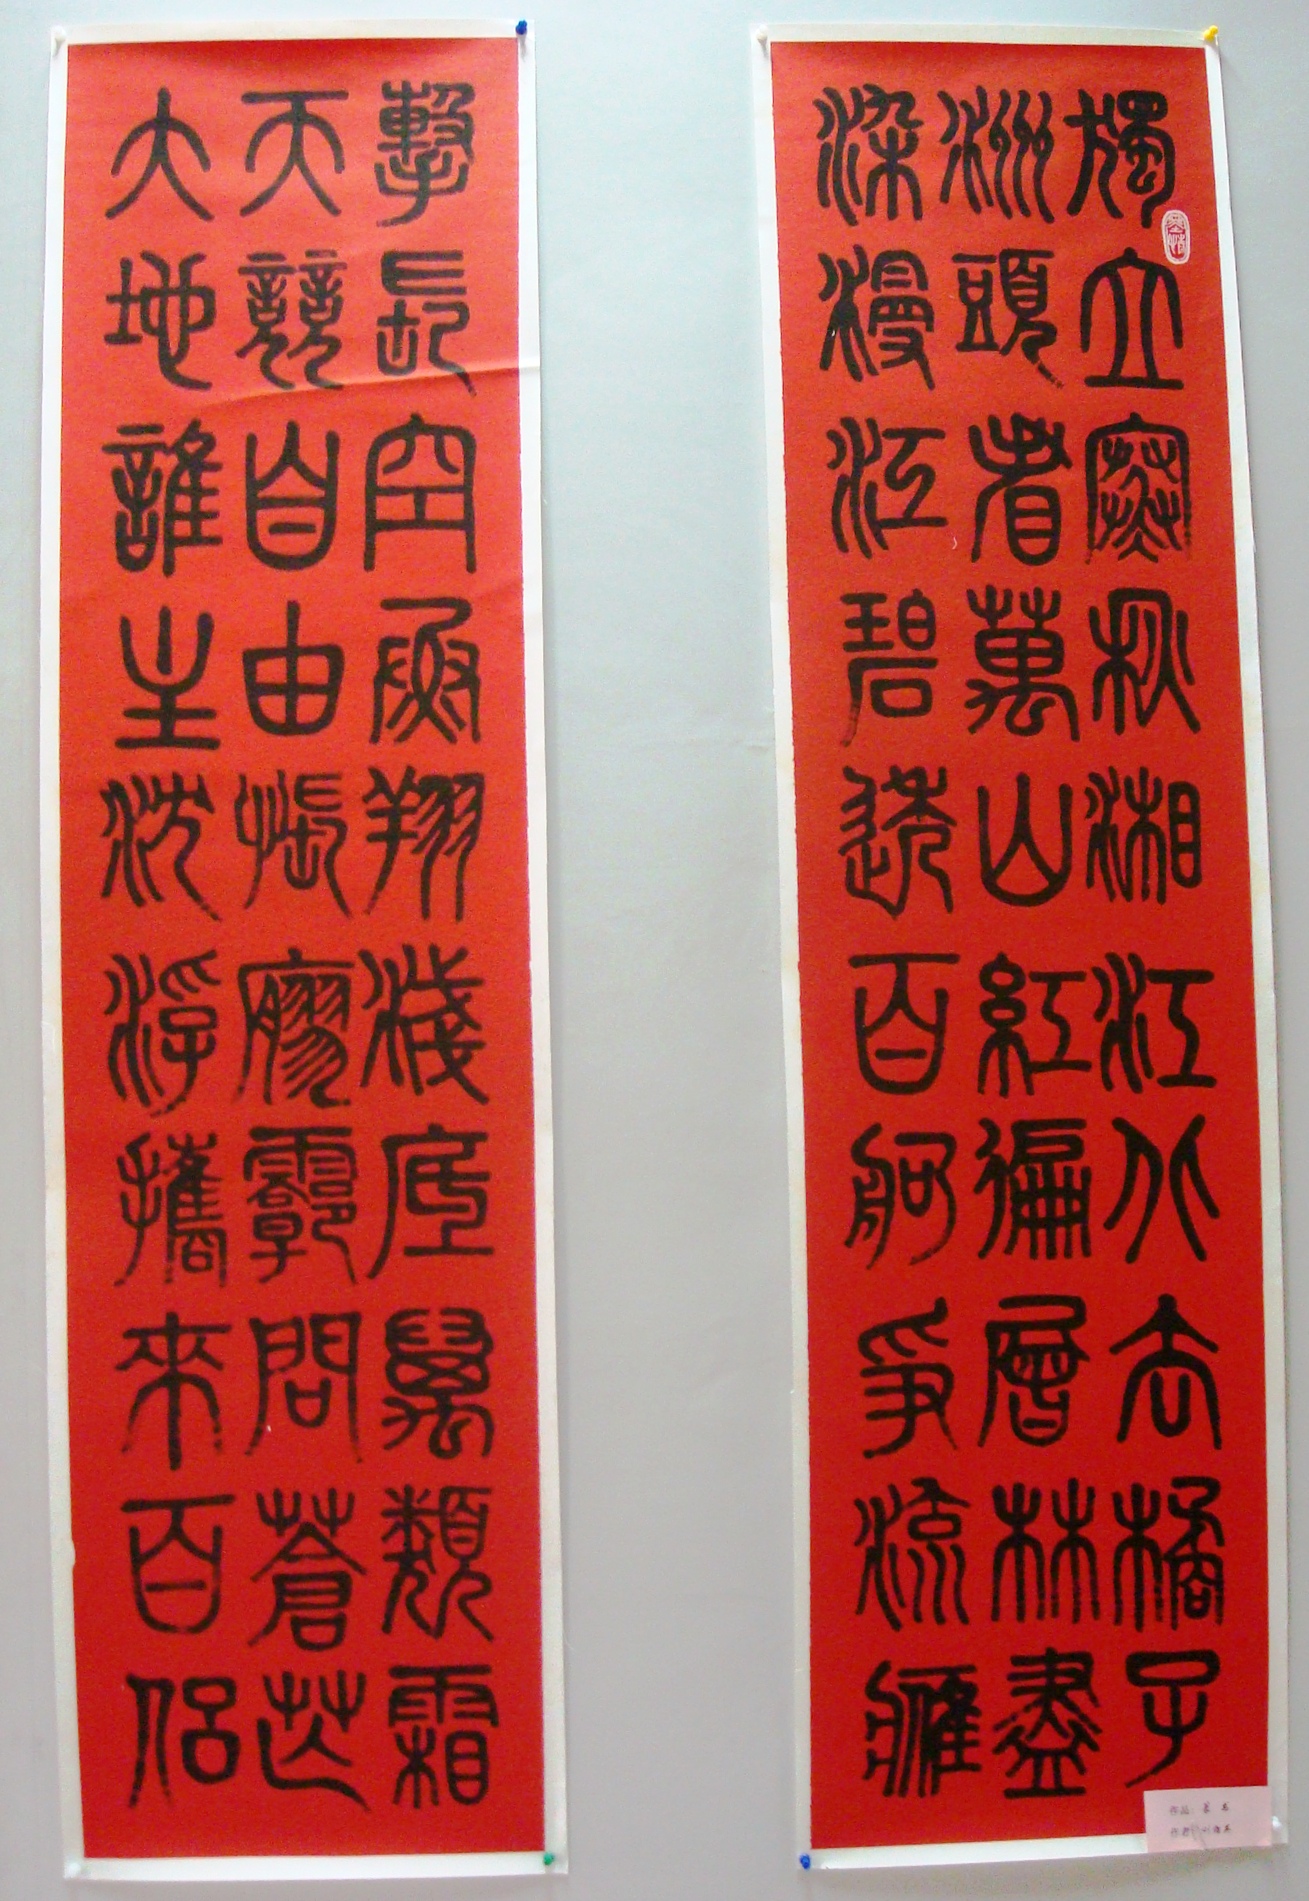 獨立寒秋湘江北去橘子
洲頭看萬山紅徧層林盡
染漫江碧透百舸爭流鷹
擊長空魚翔淺底萬類霜
天競自由悵廖霩問蒼茫
大地誰主沈浮攜來百侶
作品：篆书
作者：